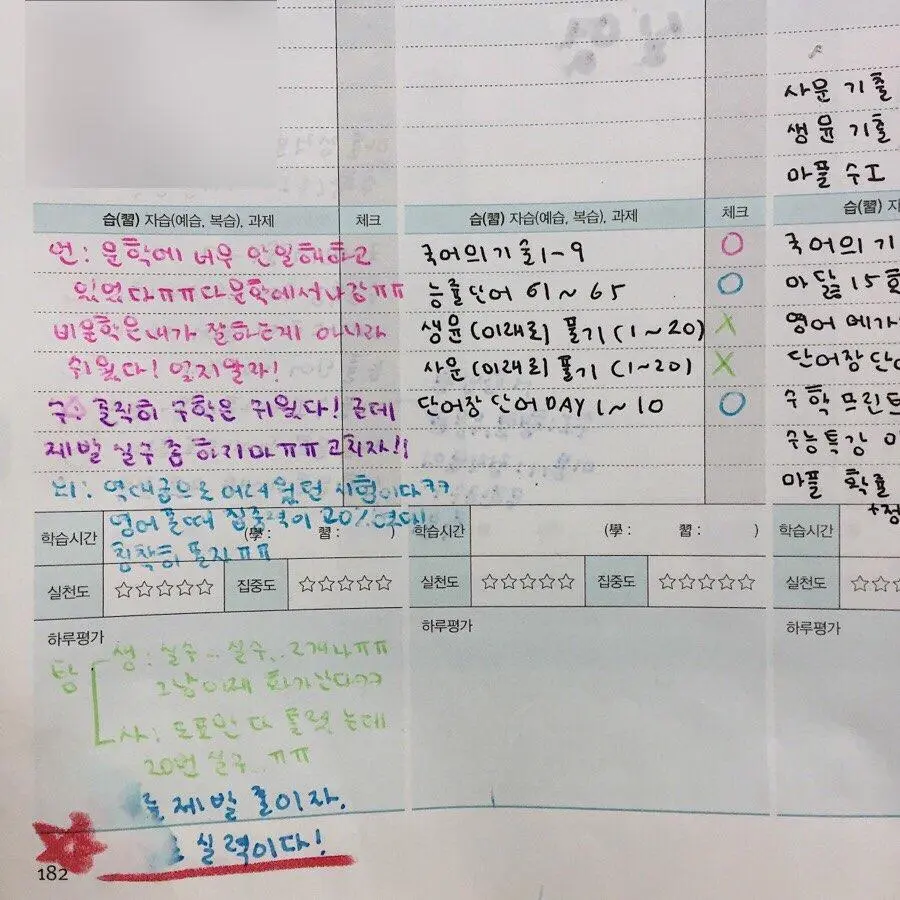 사문 기출
생윤 기출
마플 수
습(習) 자습(예습, 복습), 과제
체크
언: 문학에 너무 안일해하고
있었다ㅠㅠ 다 문학에서 나감ㅠㅠ
비문학은 내가 잘하는게 아니라
쉬웠다! 잊지말자!
수: 솔직히 수학은 쉬웠다! 근데
제발 실수 좀 하지마ㅠㅠ 고치자!!
외: 역대급으로 어려웠던 시험이다ㅋㅋ
영어 풀때 집중력이 20%였다!
침착히 풀자ㅠㅠ
학습시간
(學: 習: )
실천도 ☆☆☆☆☆ 집중도 ☆☆☆☆☆
하루평가
탐
생: 실수.. 실수.. 2개나ㅠㅠ
그냥 이제 화가난다ㅋㅋ
사: 도표인 다 풀렷는데
20번 실수.. ㅠㅠ
제발 줄이자.
실력이다!
182
습(習) 자습(예습, 복습), 과제
체크
국어의 기술 1-9 O
능률단어 61~65 O
생윤 (이래로) 필기 (1~20) X
사문 (이래로) 필기 (1~20) X
단어장 단어 DAY 1~10 O
학습시간
(學: 習: )
실천도 ☆☆☆☆☆ 집중도 ☆☆☆☆☆
하루평가
습(習) 자
국어의 기
아닳 15회
영어 메가
단어장 단어
수학 프린트
수능특강
마플 확률
+정
학습시간
실천도 ☆☆
하루평가